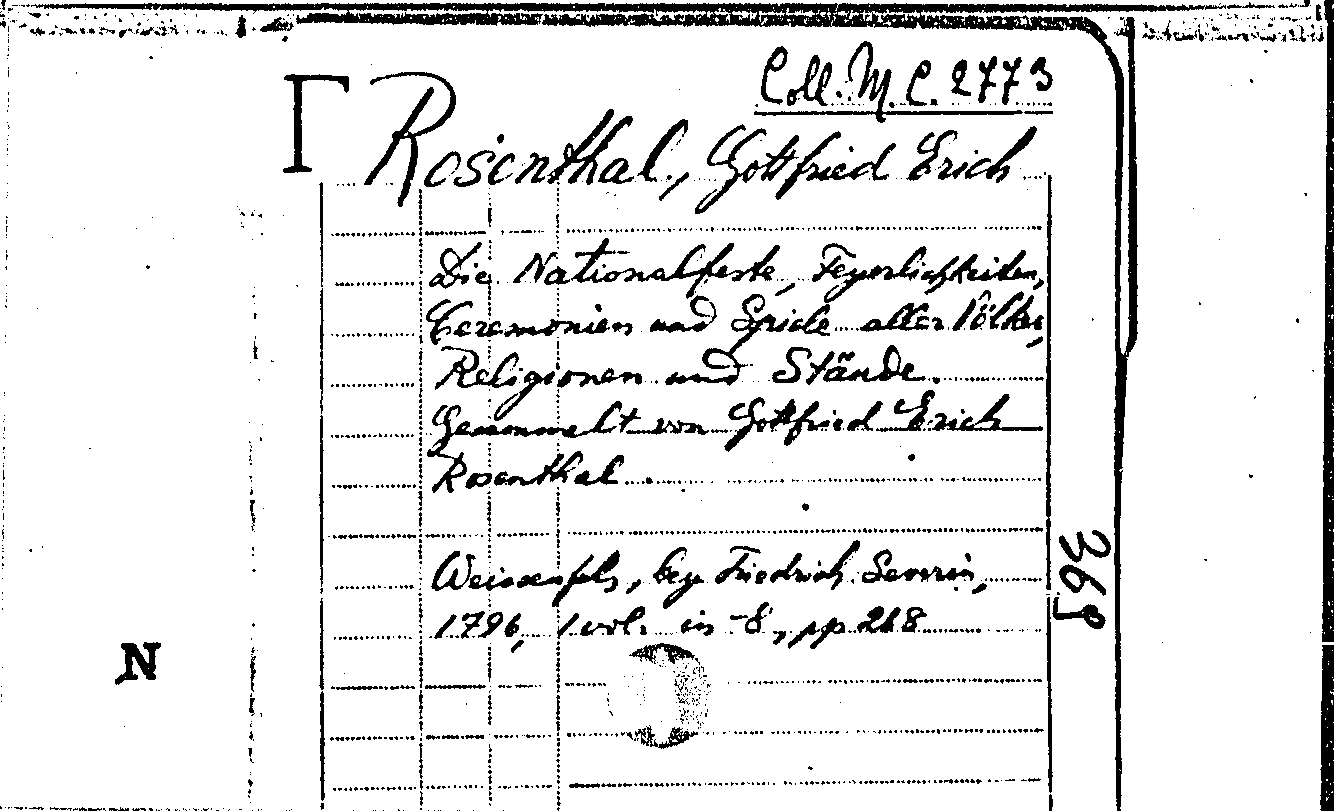 Coll. M. C. 2773
Rosenthal, Gottfried Erich
Die Nationalfeste, Feyerlichkeiten,
Ceremonien und Spiele aller Völker,
Religionen und Stände.
Gesammelt von Gottfried Erich
Rosenthal.
Weissenfels, bey Friedrich Severin,
1796, 1 vol. in-8, pp 268
369
N